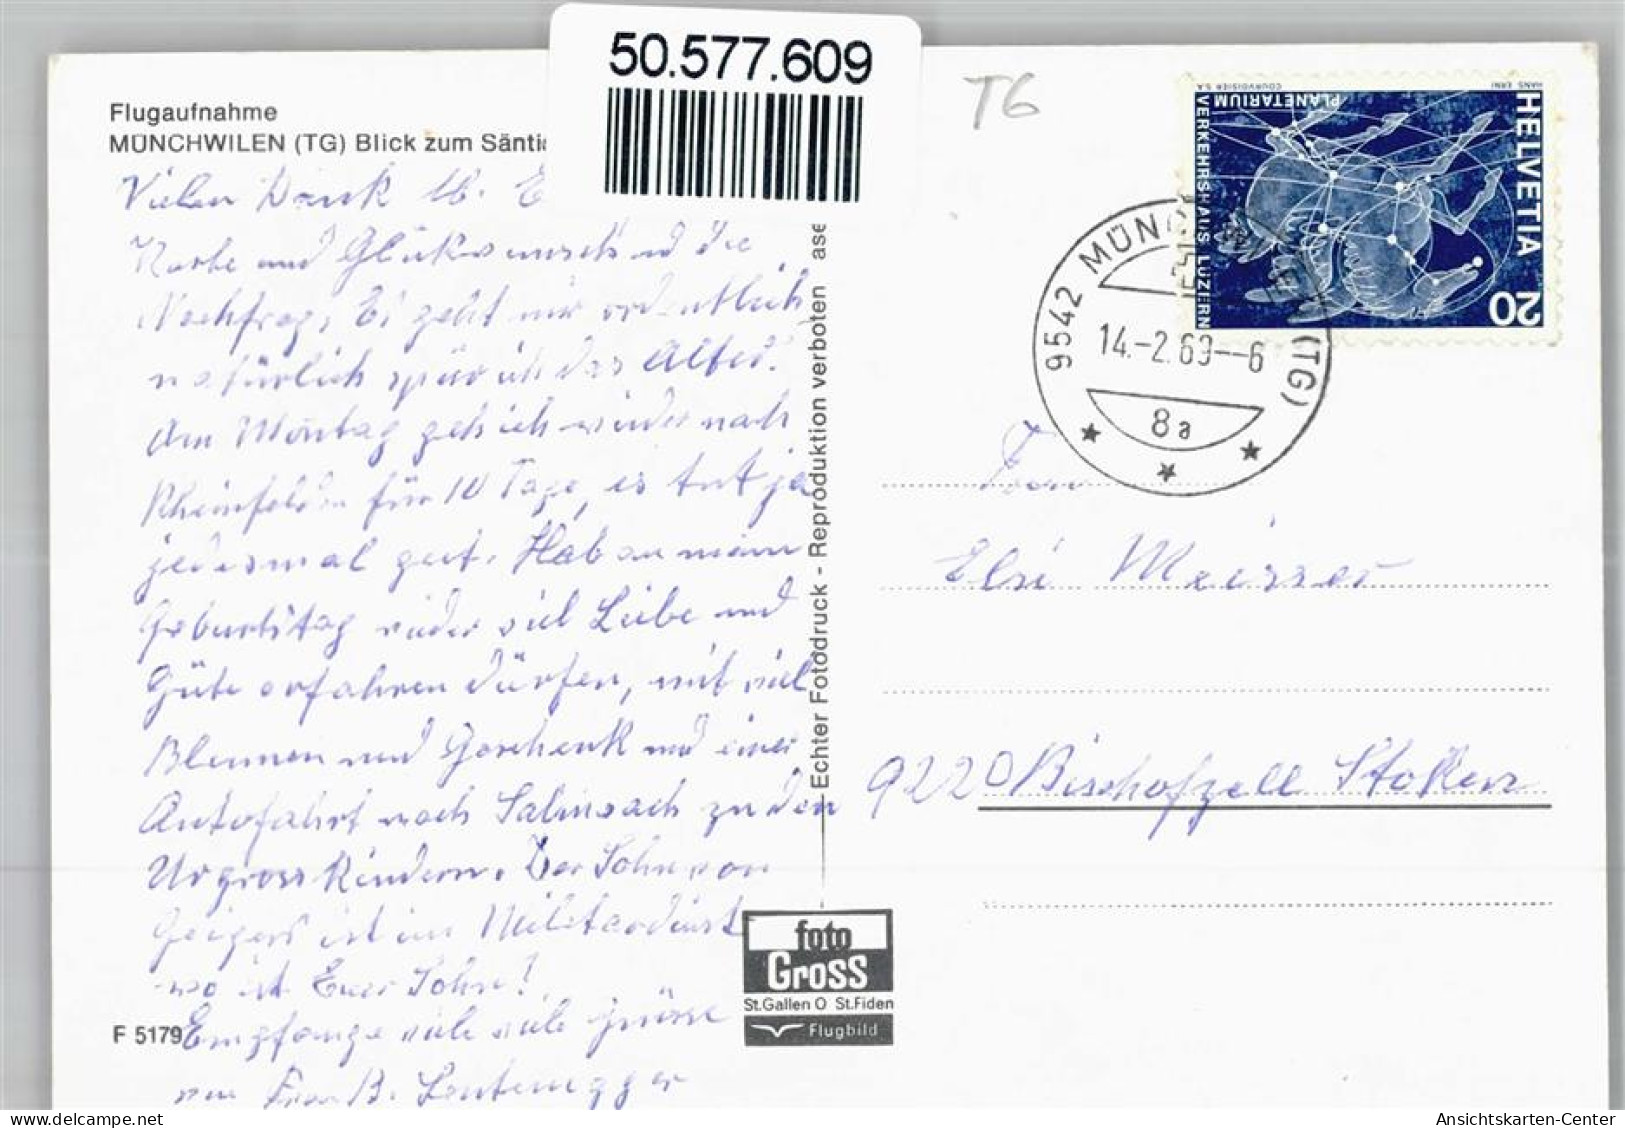 50.577.609
Flugaufnahme
MÜNCHWILEN (TG) Blick zum Säntis
T6
Vielen Dank lb. E
Karte und Glückwunsch und die
Nachfrag, Es geht mir ordentlich
natürlich spür ich das Alter.
Am Montag geh ich wieder nach
Rheinfelden für 10 Tage, es tut ja
jedesmal gut. Hab an meim
Geburtstag wieder viel Liebe und
Güte erfahren dürfen, mit viel
Blumen und Geschenk und einer
Autofahrt nach Salmsach zu den
Urgross Kindern. Der Sohn von
Geigers ist im Militärdienst
wo ist Euer Sohn!
Empfange viele viele grüsse
von Frau B. Leutenegger
F 5179
Echter Fotodruck - Reproduktion verboten ase
foto
Gross
St.Gallen O St.Fiden
Flugbild
HELVETIA
20
VERKEHRSHAUS LUZERN
PLANETARIUM
HANS ERNI
COURVOISIER S.A.
9542 MÜNCHWILEN (TG)
14.-2.69--6
8a
Frau
Elsi Meisser
9220 Bischofzell Stoken
Ansichtskarten-Center
delcampe.net